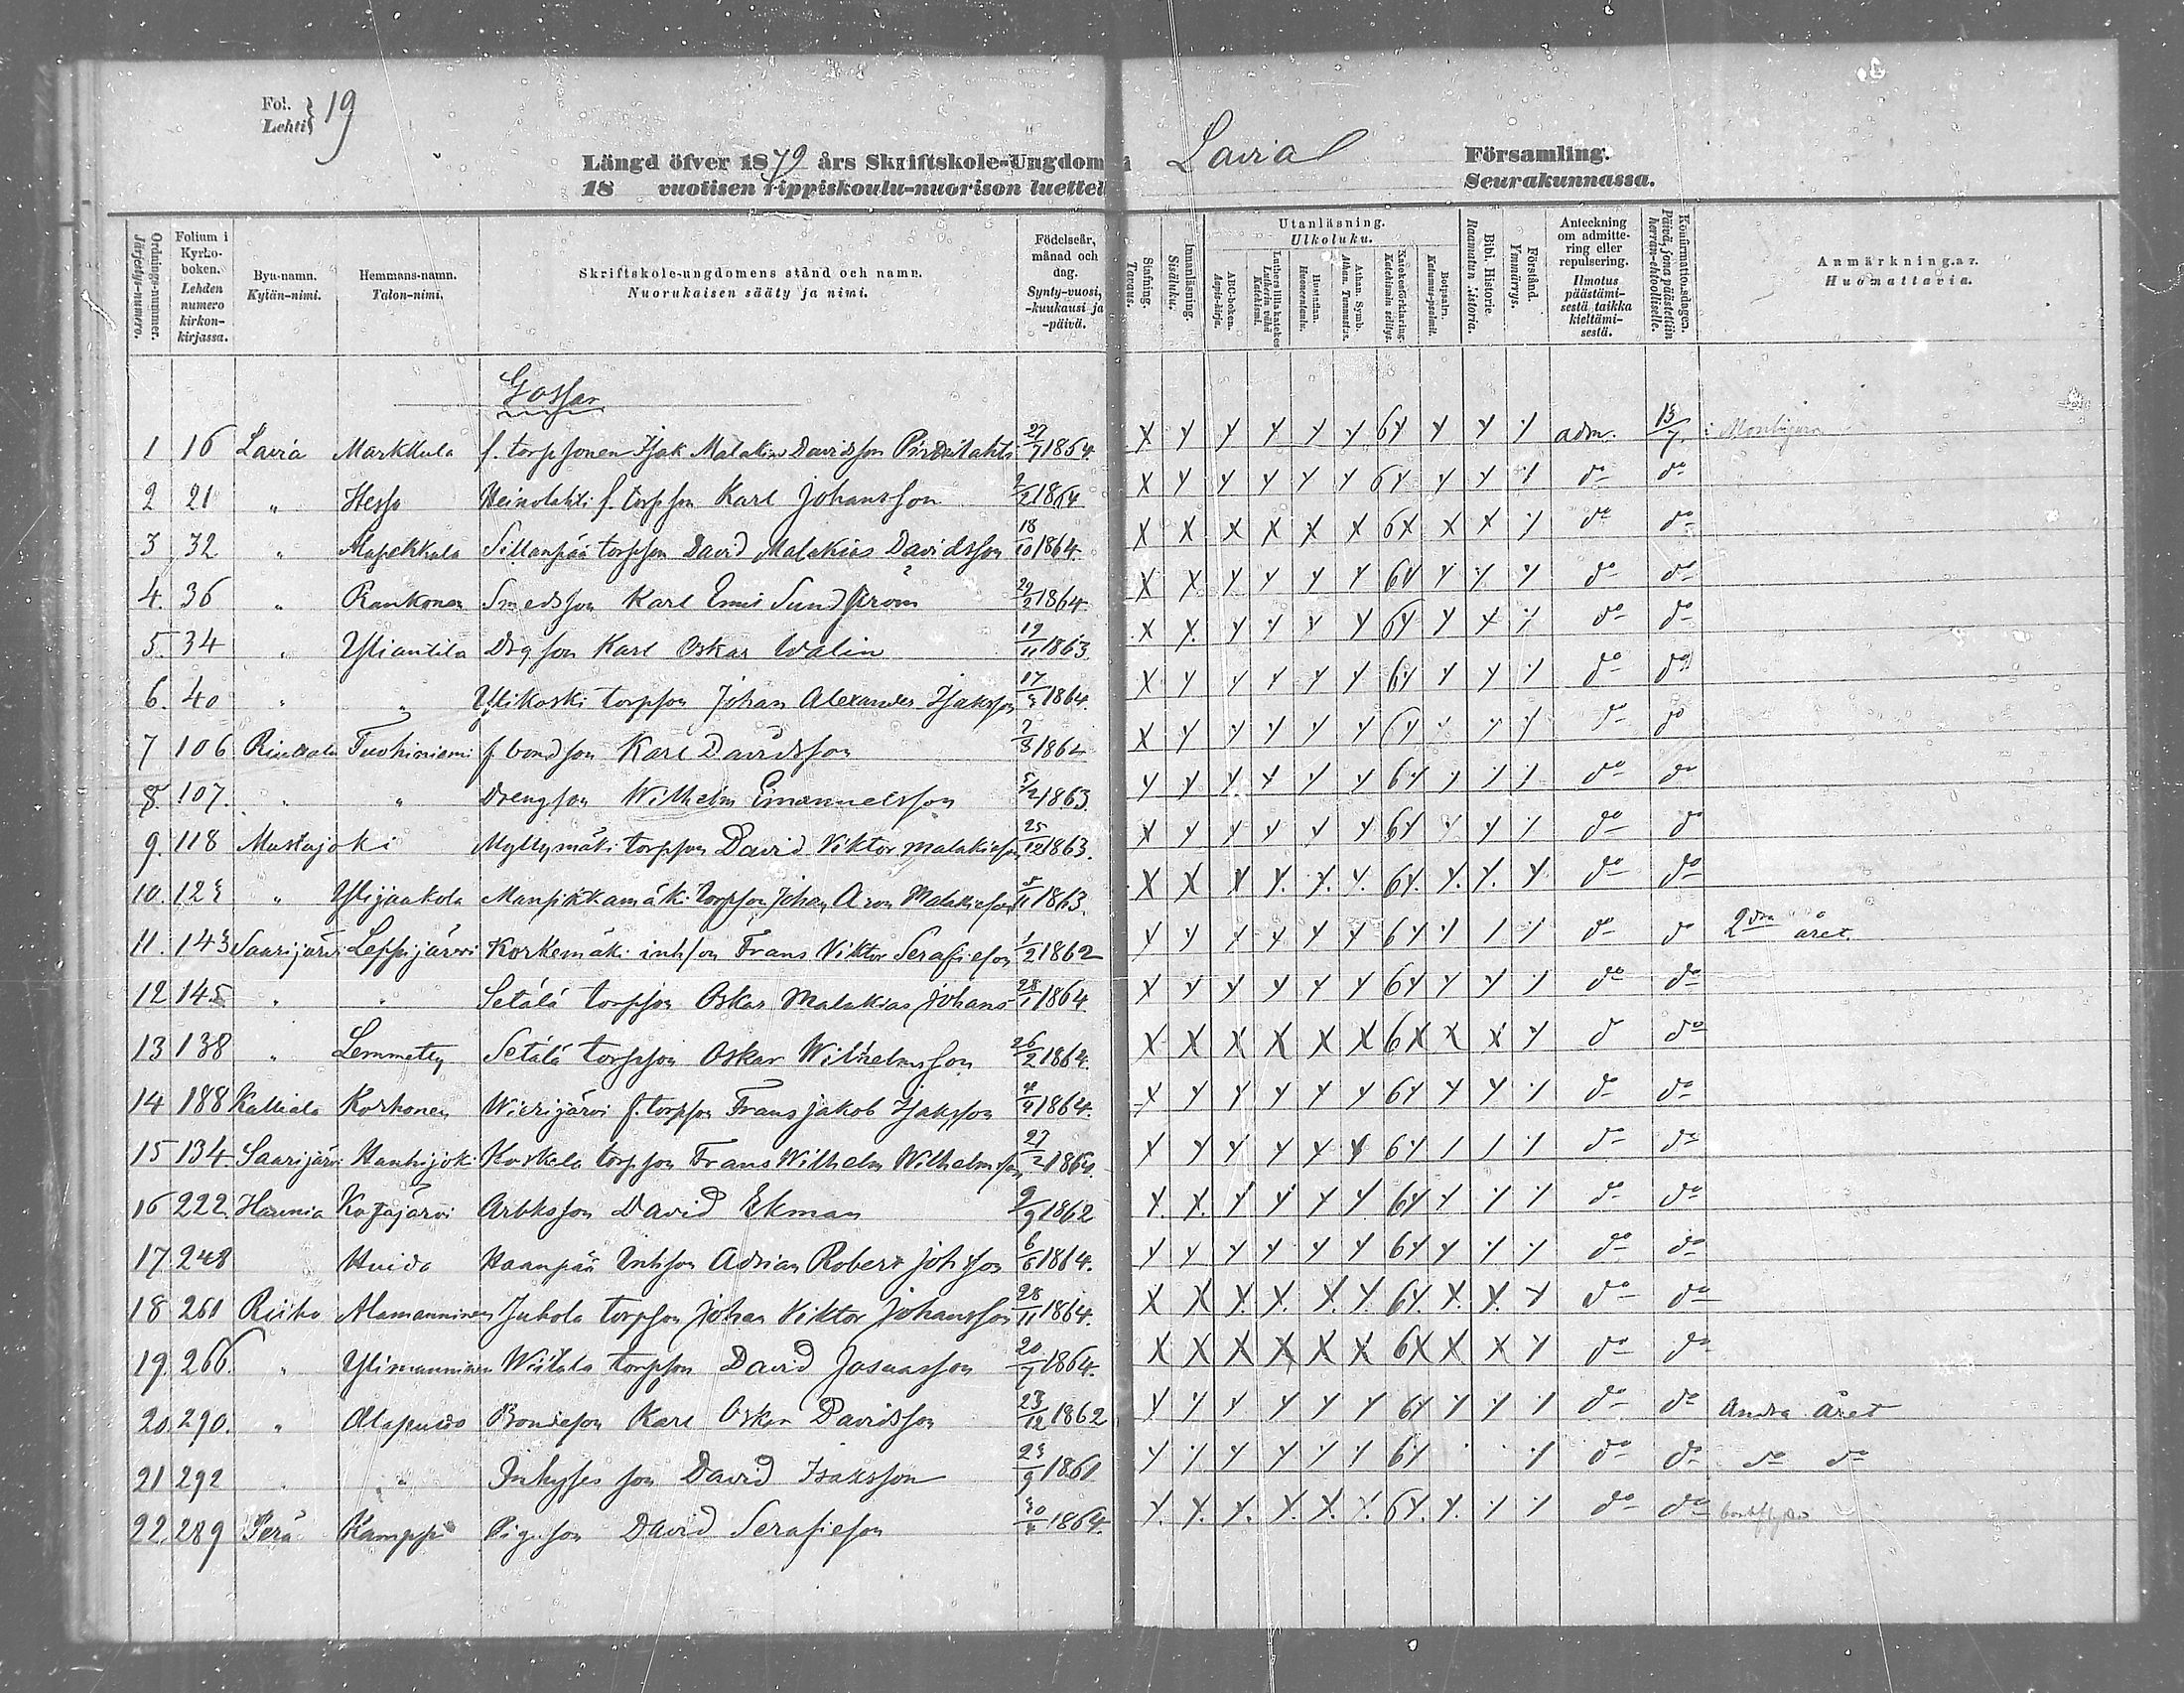 Fol. Lehti } 19
Längd öfver 1879 års Skriftskole-Ungdom i Lavia Församling.
18 vuotisen rippiskoulu-nuorison luettel Seurakunnassa.
Ordnings-nummer. Järjestys-numero.
Folium i Kyrko-boken. Lehden numero kirkon-kirjassa.
Byn-namn. Kylän-nimi.
Hemmans-namn. Talon-nimi.
Skriftskole-ungdomens stånd och namn. Nuorukaisen sääty ja nimi.
Födelseår, månad och dag. Synty-vuosi, -kuukausi ja -päivä.
Stafning. Tavaus.
Innanläsning. Sisäluku.
Utanläsning. Ulkoluku.
ABC-boken. Aapis-kirja.
Luthers lilla katekes Lutherin vähä Katekismi.
Hustaflan. Huoneentaulu.
Athan. Symb. Athan. Tunnustus.
Katekesförklaring. Katekismin selitys.
Botpsalm. Katumus-psalmit.
Bibl. Historie. Raamatun historia.
Förstånd. Ymmärrys.
Anteckning om admittering eller repulsering. Ilmotus päästämisestä taikka kieltämisestä.
Konfirmationsdagen. Päivä, jona päästettiin herran-ehtoolliselle.
Anmärkningar. Huomattavia.
Gossar
1 16 Lavia Markkula f. torpsonen Isak Malakias Davidsson 27/7 1864. X Y Y Y Y Y 6Y Y Y Y adm. 15/7.
2 21 " Hesso Heinolahti f. torpson Karl Johansson 2/2 1864 X Y Y Y Y Y 6Y Y Y Y do do
3 32 " Alapekkala Sillanpää torpson David Malakias Davidsson 18/10 1864. X X X X X X 6X X X Y do do
4. 36 " Rankonen Smedsson Karl Emil Sundström 29/2 1864. X X Y Y Y Y 6Y Y Y Y do do
5. 34 " Yliantila Drgson Karl Oskar Walin 19/11 1863. X X Y Y Y Y 6Y Y X Y do do
6. 40 " " Ylikoski torpson Johan Alexander Isaksson 17/ 1864. X Y Y Y Y Y 6Y Y Y Y do do
7 106 Tuohiniemi f. bondson Karl Davidsson 7/3 1864 X Y Y Y Y Y 6Y Y Y Y do do
8. 107. " " Drengson Wilhelm Emanuelsson 5/12 1863. Y Y Y Y Y Y 6Y Y Y Y do do
9. 118 Mustajoki Myllymäki torpson David Viktor Malakiesson 25/12 1863. X Y Y Y Y Y 6Y Y Y Y do do
10. 123 " Ylijaakola Mansikkamäki torpson Johan Aron Malakiesson 5/11 1863. X X X Y. Y. Y. 6Y. Y. Y. Y do do
11. 143 Saarijärvi Leppijärvi Korkemäki inhson Frans Viktor Serafieson 1/2 1862 Y Y Y Y Y Y 6Y Y Y Y do do 2dra året.
12 145 " " Setälä torpson Oskar Malakias Johans 28/1 1864. X Y Y Y Y Y 6Y Y Y Y do do
13 138 " Lemmetty Setälä torpson Oskar Wilhelmsson 26/2 1864. X X X X X X 6X X X Y do do
14 188 Kalliala Korhonen Wierijärvi f. torpson Frans Jakob Isaksson 4/4 1864. X Y Y Y Y Y 6Y Y Y Y do do
15 134 Saarijärvi Hanhijoki Koskela torpson Frans Wilhelm Wilhelmsson 27/2 1864. X Y Y Y Y Y 6Y Y Y Y do do
16 222. Arbksson David Ekman 9/9 1862 X. X. Y Y Y Y 6Y Y Y Y do do
17. 248 Huida Haanpää Inhson Adrian Robert Johsson 6/6 1864. Y Y Y Y Y Y 6Y Y Y Y do do
18 261 Riiho Alamanninen Jukola torpson Johan Viktor Johansson 28/11 1864. X X X. X. X. Y. 6Y. X. X. Y do do
19. 266. " Ylimanninen Wiitala torpson David Josuasson 20/7 1864. X X X X X X 6X X X Y do do
20. 290. " Alapuido Bondeson Karl Oskar Davidsson 23/12 1862 Y Y Y Y Y Y 6Y Y Y Y do do Andra Året
21 292 " " Inhyses son David Isaksson 23/9 1861 Y Y Y Y Y Y 6Y Y do do do do
22. 289 Perä Kamppi Pigson David Serafieson 30/ 1864. Y. Y. Y. Y. X. Y. 6Y. Y. Y Y do do